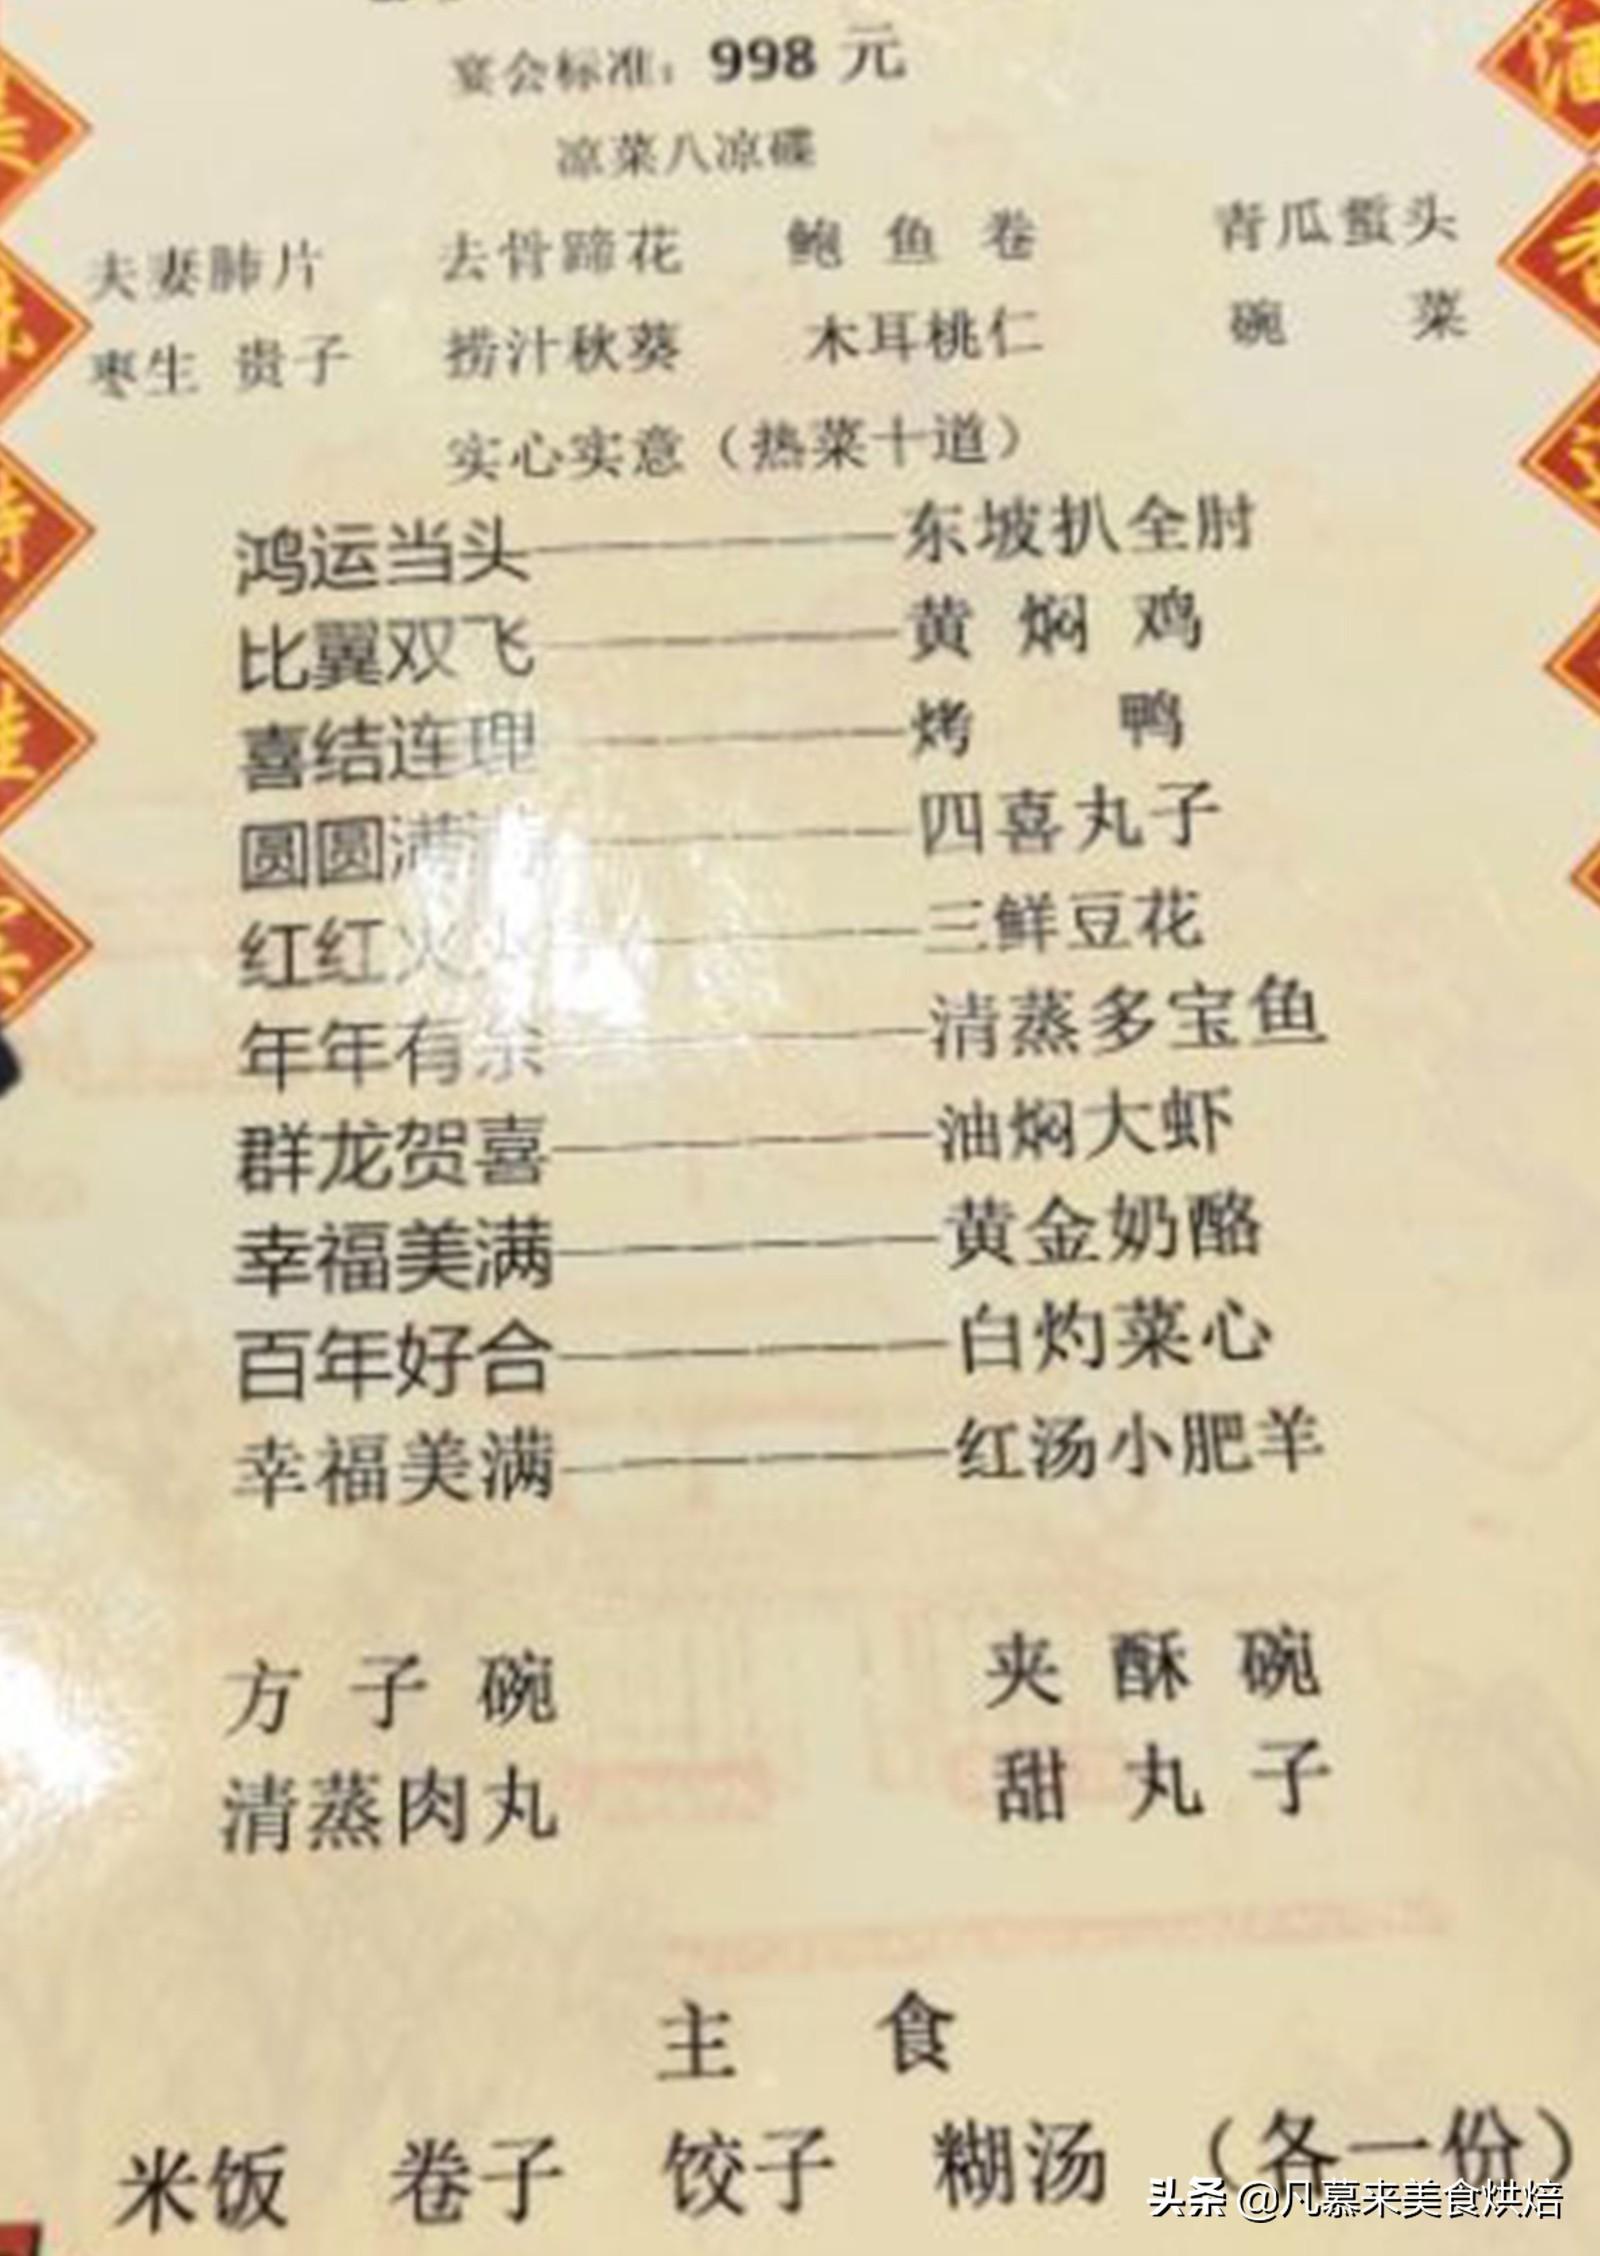 宴会标准：998 元
凉菜八凉碟
夫妻肺片 去骨蹄花 鲍鱼卷 青瓜蜇头
枣生贵子 捞汁秋葵 木耳桃仁 碗菜
实心实意（热菜十道）
鸿运当头——东坡扒全肘
比翼双飞——黄焖鸡
喜结连理——烤鸭
圆圆满满——四喜丸子
红红火火——三鲜豆花
年年有余——清蒸多宝鱼
群龙贺喜——油焖大虾
幸福美满——黄金奶酪
百年好合——白灼菜心
幸福美满——红汤小肥羊
方子碗 夹酥碗
清蒸肉丸 甜丸子
主食
米饭 卷子 饺子 糊汤 （各一份）
头条 @凡慕来美食烘焙